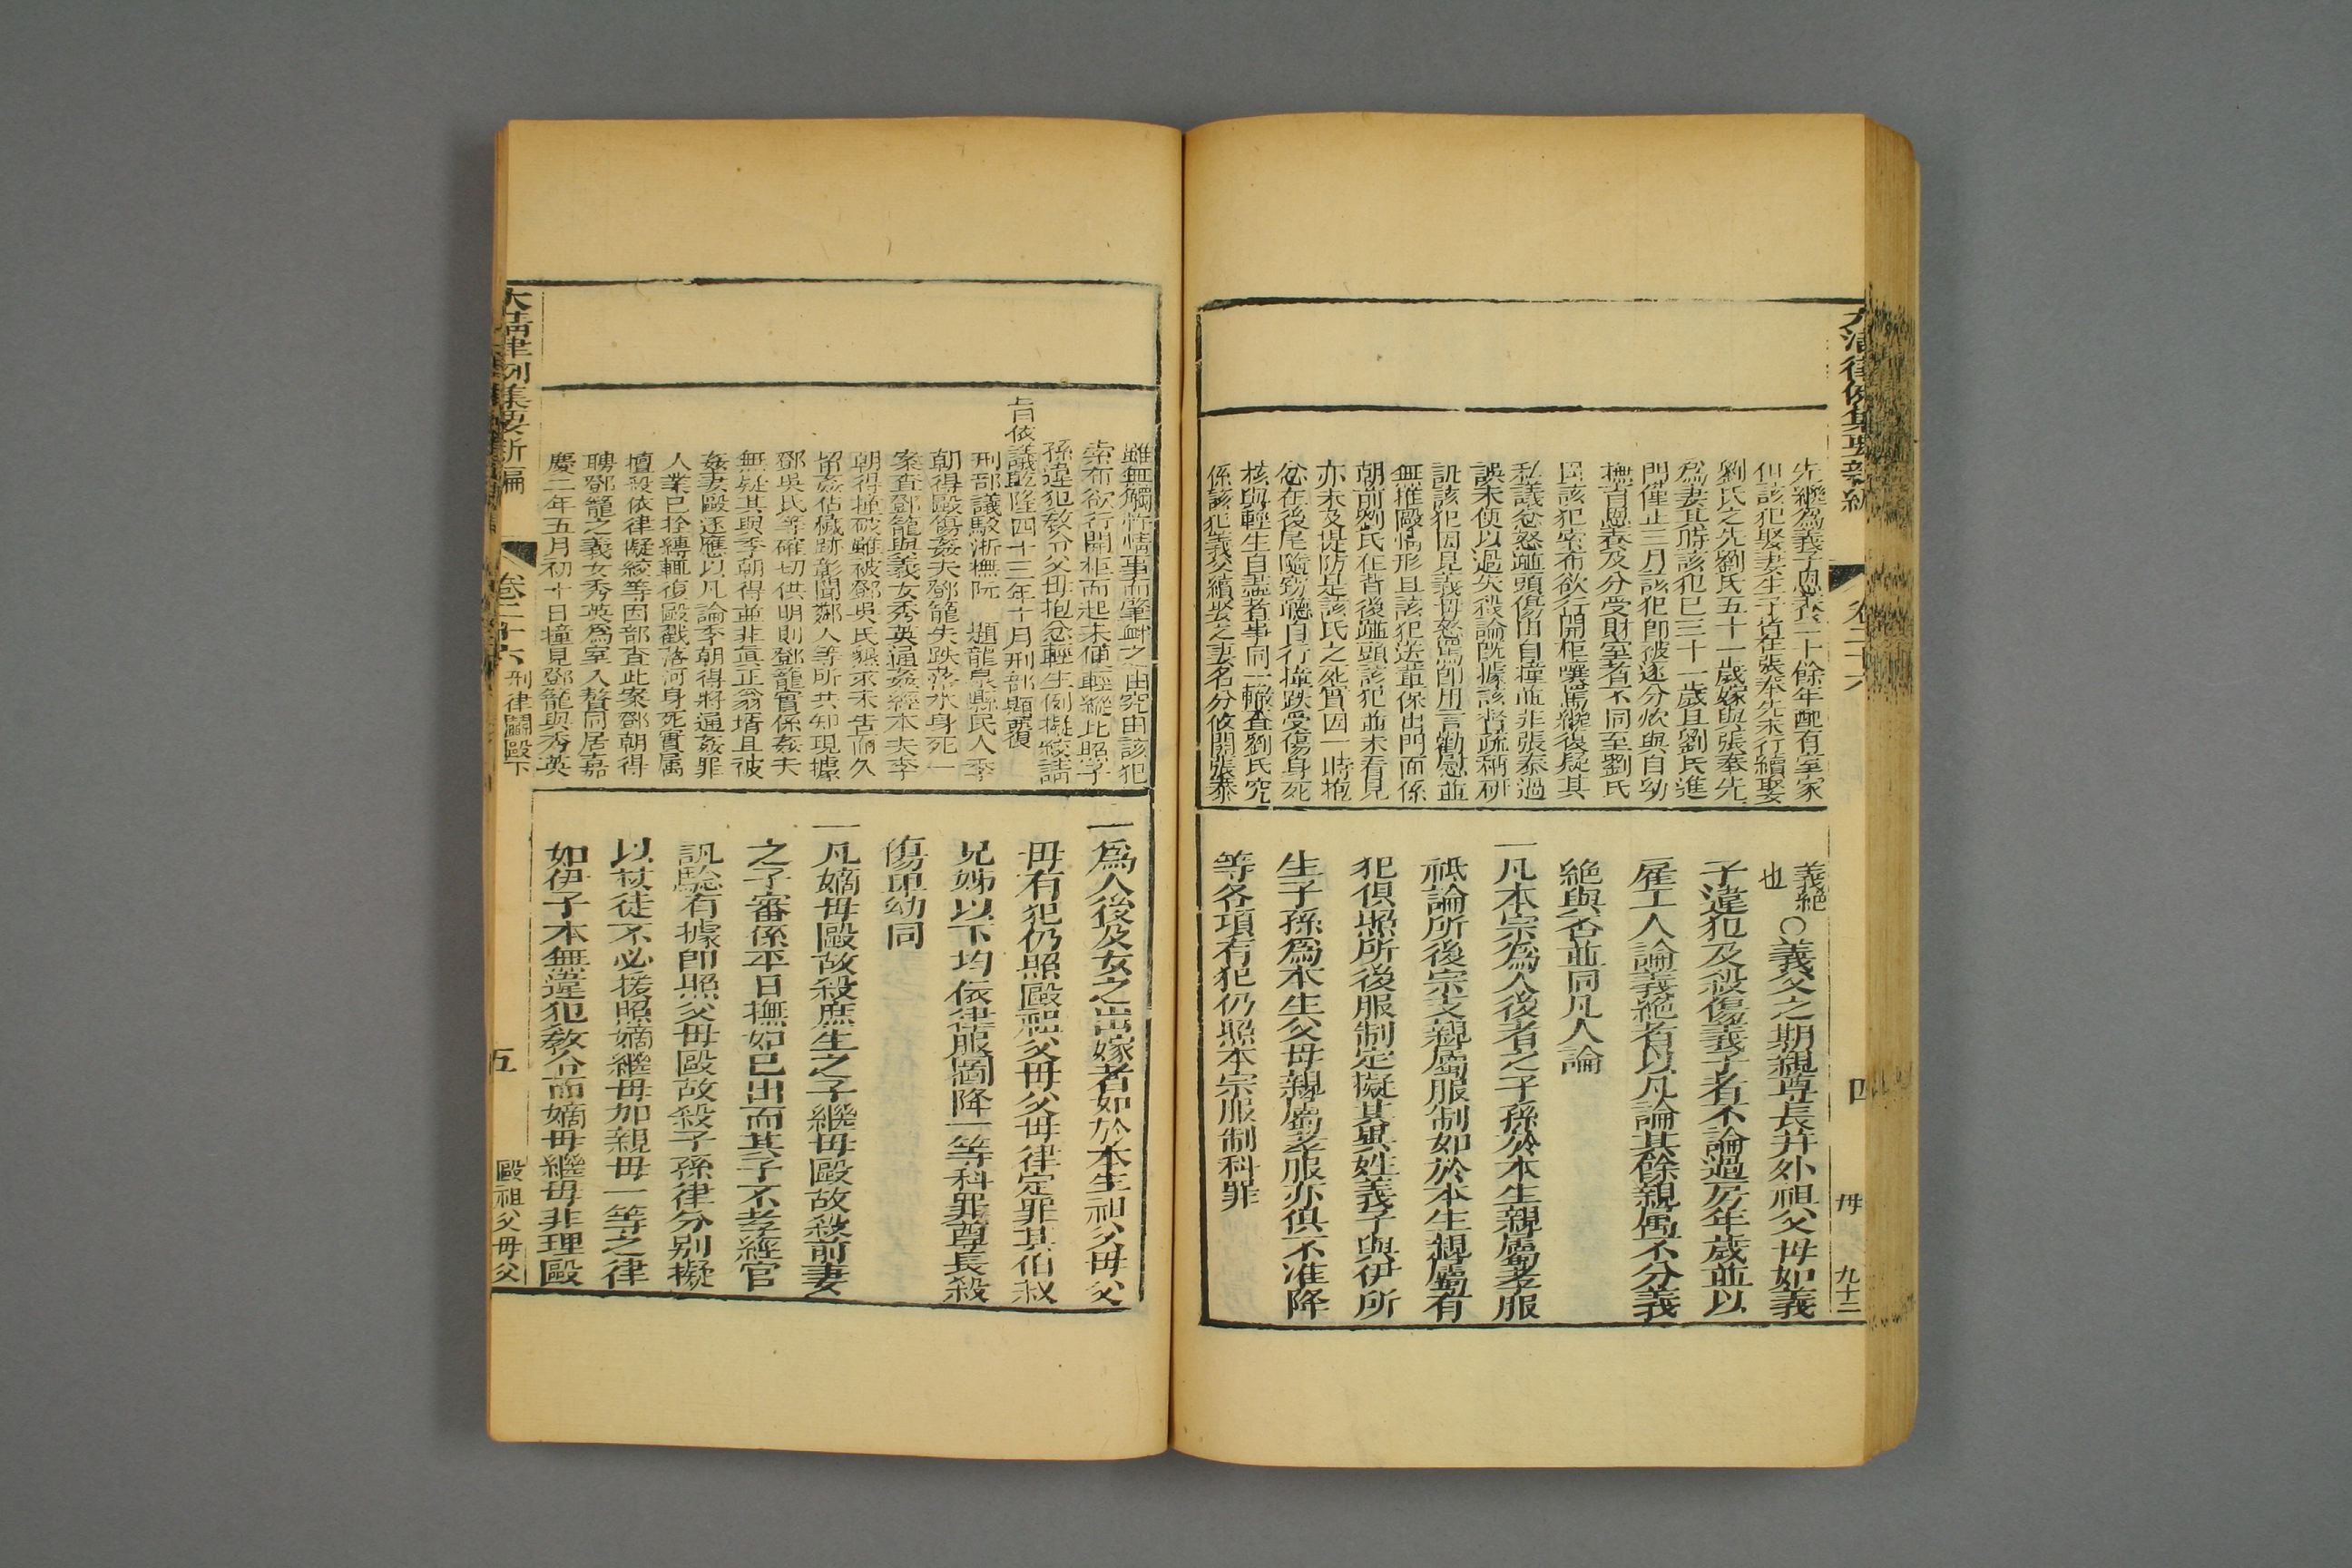 大清律例集要新編
卷二十六
四
毋
九十二
先繼爲義子恩養二十餘年配有室家
但該犯娶妻生子皆在張奉先未行續娶
劉氏之先劉氏五十一歲嫁與張奉先
爲妻其時該犯已三十一歲且劉氏進
門僅止三月該犯卽被逐分炊與自幼
撫育恩養及分受財室者不同至劉氏
因該犯索布欲行開柜嚷罵纔後疑其
私議忿怒碰頭傷由自撞並非張泰過
誤未便以過失殺論旣據該督疏稱研
訊該犯因見義母怒罵卽用言勸慰並
無推毆情形且該犯送董保出門面係
朝前劉氏在背後碰頭該犯並未看見
亦未及提防是該氏之死實因一時抱
忿在後尾隨竊聽自行撞跌受傷身死
核與輕生自盡者事同一轍査劉氏究
係該犯義父續娶之妻名分攸關張泰
義絕
也
○義父之期親尊長幷外祖父母如義
子違犯及殺傷義子者不論過房年歲並以
雇工人論義絕者以凡論其餘親屬不分義
絕與否並同凡人論
一凡本宗爲人後者之子孫於本生親屬孝服
祇論所後宗支親屬服制如於本生親屬有
犯俱照所後服制定擬其異姓義子與伊所
生子孫爲本生父母親屬孝服亦俱不准降
等各項有犯仍照本宗服制科罪
雖無觸忤情事而肇衅之由究由該犯
索布欲行開柜而起未便輕縱比照子
孫違犯敎令父母抱忿輕生例擬絞請
旨依議乾隆四十三年十月刑部題覆
刑部議駁浙撫阮　題龍泉縣民人季
朝得毆傷姦夫鄧籠失跌落水身死一
案査鄧籠與義女秀英通姦經本夫季
朝得撞破雖被鄧吳氏懇求未告而久
留姦佔穢跡彰聞鄰人等所共知現據
鄧吳氏等確切供明則鄧籠實係姦夫
無疑其與季朝得並非眞正翁壻且彼
姦妻毆逐應以凡論季朝得將通姦罪
人業已拴縛輒復毆戳落河身死實屬
擅殺依律擬絞等因部査此案鄧朝得
聘鄧籠之義女秀英爲室入贅同居嘉
慶二年五月初十日撞見鄧籠與秀英
一爲人後及女之出嫁者如於本生祖父母父
母有犯仍照毆祖父母父母律定罪其伯叔
兄姊以下均依律服圖降一等科罪尊長殺
傷卑幼同
一凡嫡母毆故殺庶生之子繼母毆故殺前妻
之子審係平日撫如己出而其子不孝經官
訊驗有據卽照父母毆故殺子孫律分別擬
以杖徒不必援照嫡繼母加親母一等之律
如伊子本無違犯敎令而嫡母繼母非理毆
大清律例集要新編
卷二十六
刑律鬭毆下
五
毆祖父母父